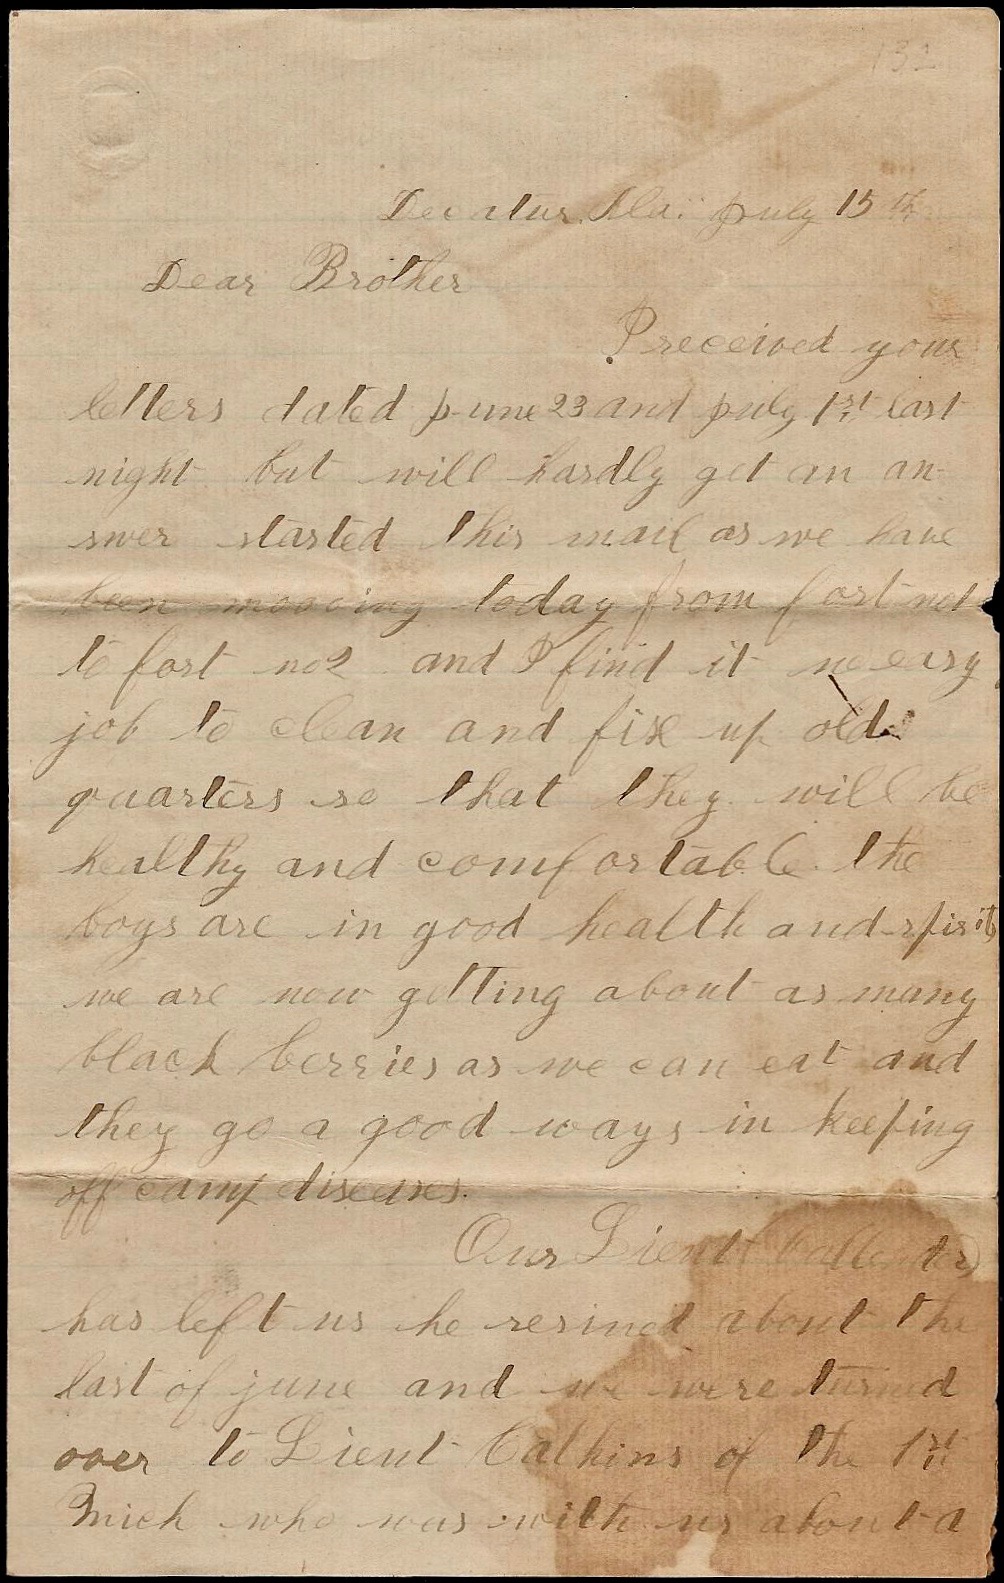 132
Decatur, Ala: July 15th
Dear Brother
I received your
letters dated June 23 and July 1st last
night but will hardly get an an-
swer started this mail as we have
been mooving today from fort no 1
to fort no 2 and I find it no easy
job to clean and fix up old
quarters so that they will be
healthy and comfortable. the
boys are in good health and spirits
we are now getting about as many
black berries as we can eat and
they go a good ways in keeping
off camp diseases.
Our Lieut (Callender)
has left us he resined about the
last of june and we were turned
over to Lieut Calkins of the 1st
Mich who was with us about a